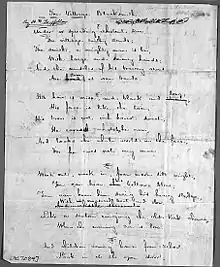 The Village Blacksmith.
Under a spreading chestnut tree
The village smithy stands;
The smith, a mighty man is he,
With large and sinewy hands;
And the muscles of his brawny arms
Are as iron bands.
His hair is crisp, and black and long,
His face is like the tan;
His brow is wet with honest sweat,
He earns whate'er he can,
And looks the whole world in the face,
For he owes not any man.
Week out, week in, from morn till night,
You can hear his bellows blow;
You can hear him swing his heavy sledge
With measured beat and slow
Like a sexton ringing the
When the evening sun is low.
And children coming home from school
Look in at the open door;